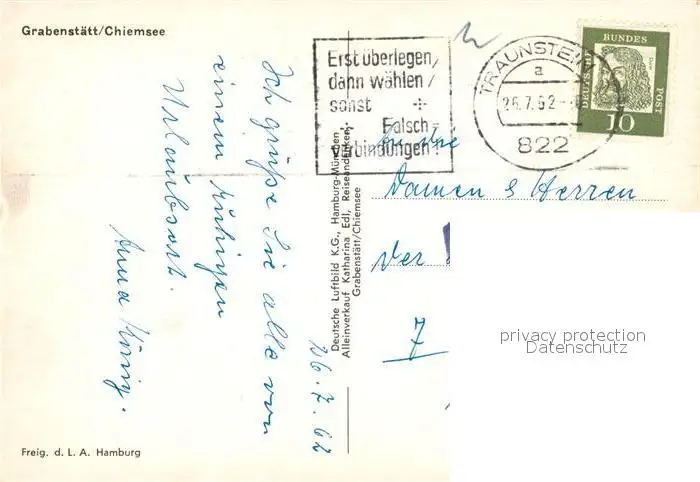 Grabenstätt/Chiemsee
Erst überlegen,
dann wählen,
sonst
Falsch-
verbindungen!
TRAUNSTEIN
a
26.7.62
822
BUNDES
DEUTSCHE
POST
10
An die
Damen & Herren
der
7
26.7.62
Ich grüße Sie alle von
einem ruhigen
Urlaubsort.
Anna König.
Deutsche Luftbild K.G., Hamburg-München
Alleinverkauf Katharina Edl, Reiseandenken,
Grabenstätt/Chiemsee
privacy protection
Datenschutz
Freig. d. L. A. Hamburg